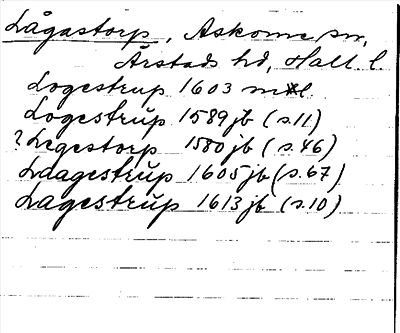 Lågastorp, Askome sn,
Årstads hd, Hall. l.
Logestrup 1603 mtl.
Logestrup 1589 jb (s. 11)
? Legestorp 1580 jb (s. 46)
Laagestrup 1605 jb (s. 67)
Lagestrup 1613 jb (s. 10)